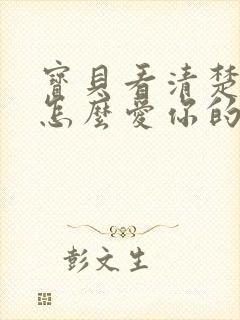 寶貝看清楚
怎麼愛你的
彭文生